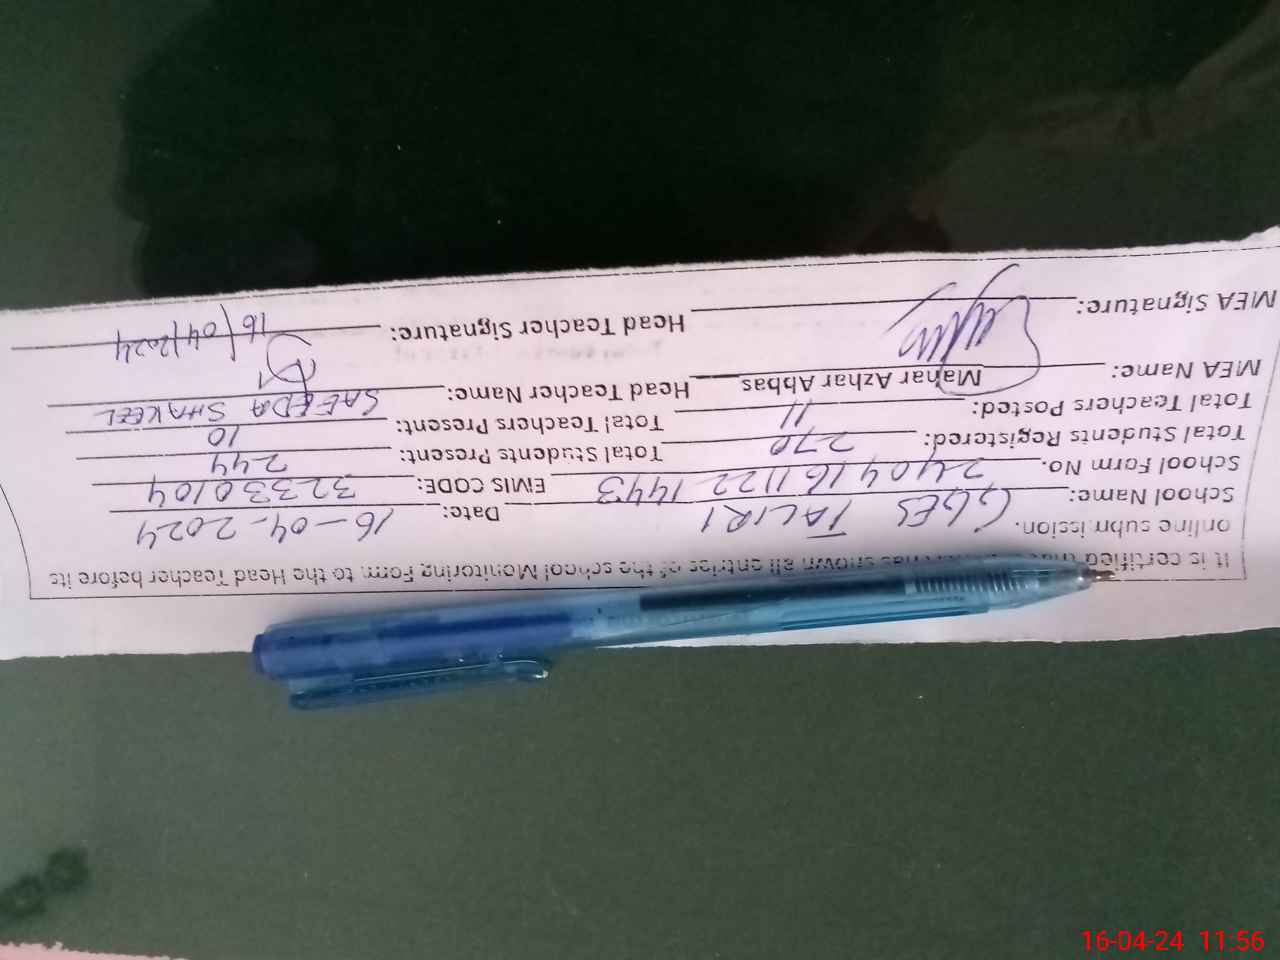 It is certified that has shown all entries of the school Monitoring Form to the Head Teacher before its
online submission.
School Name: GGES TALIRI Date: 16-04-2024
School Form No. 2404161122 1443 EMIS CODE: 32330104
Total Students Registered: 270 Total Students Present: 244
Total Teachers Posted: 11 Total Teachers Present: 10
MEA Name: Mahar Azhar Abbas Head Teacher Name: SAEEDA SHAKEEL
MEA Signature: Head Teacher Signature: 16/04/2024
16-04-24 11:56